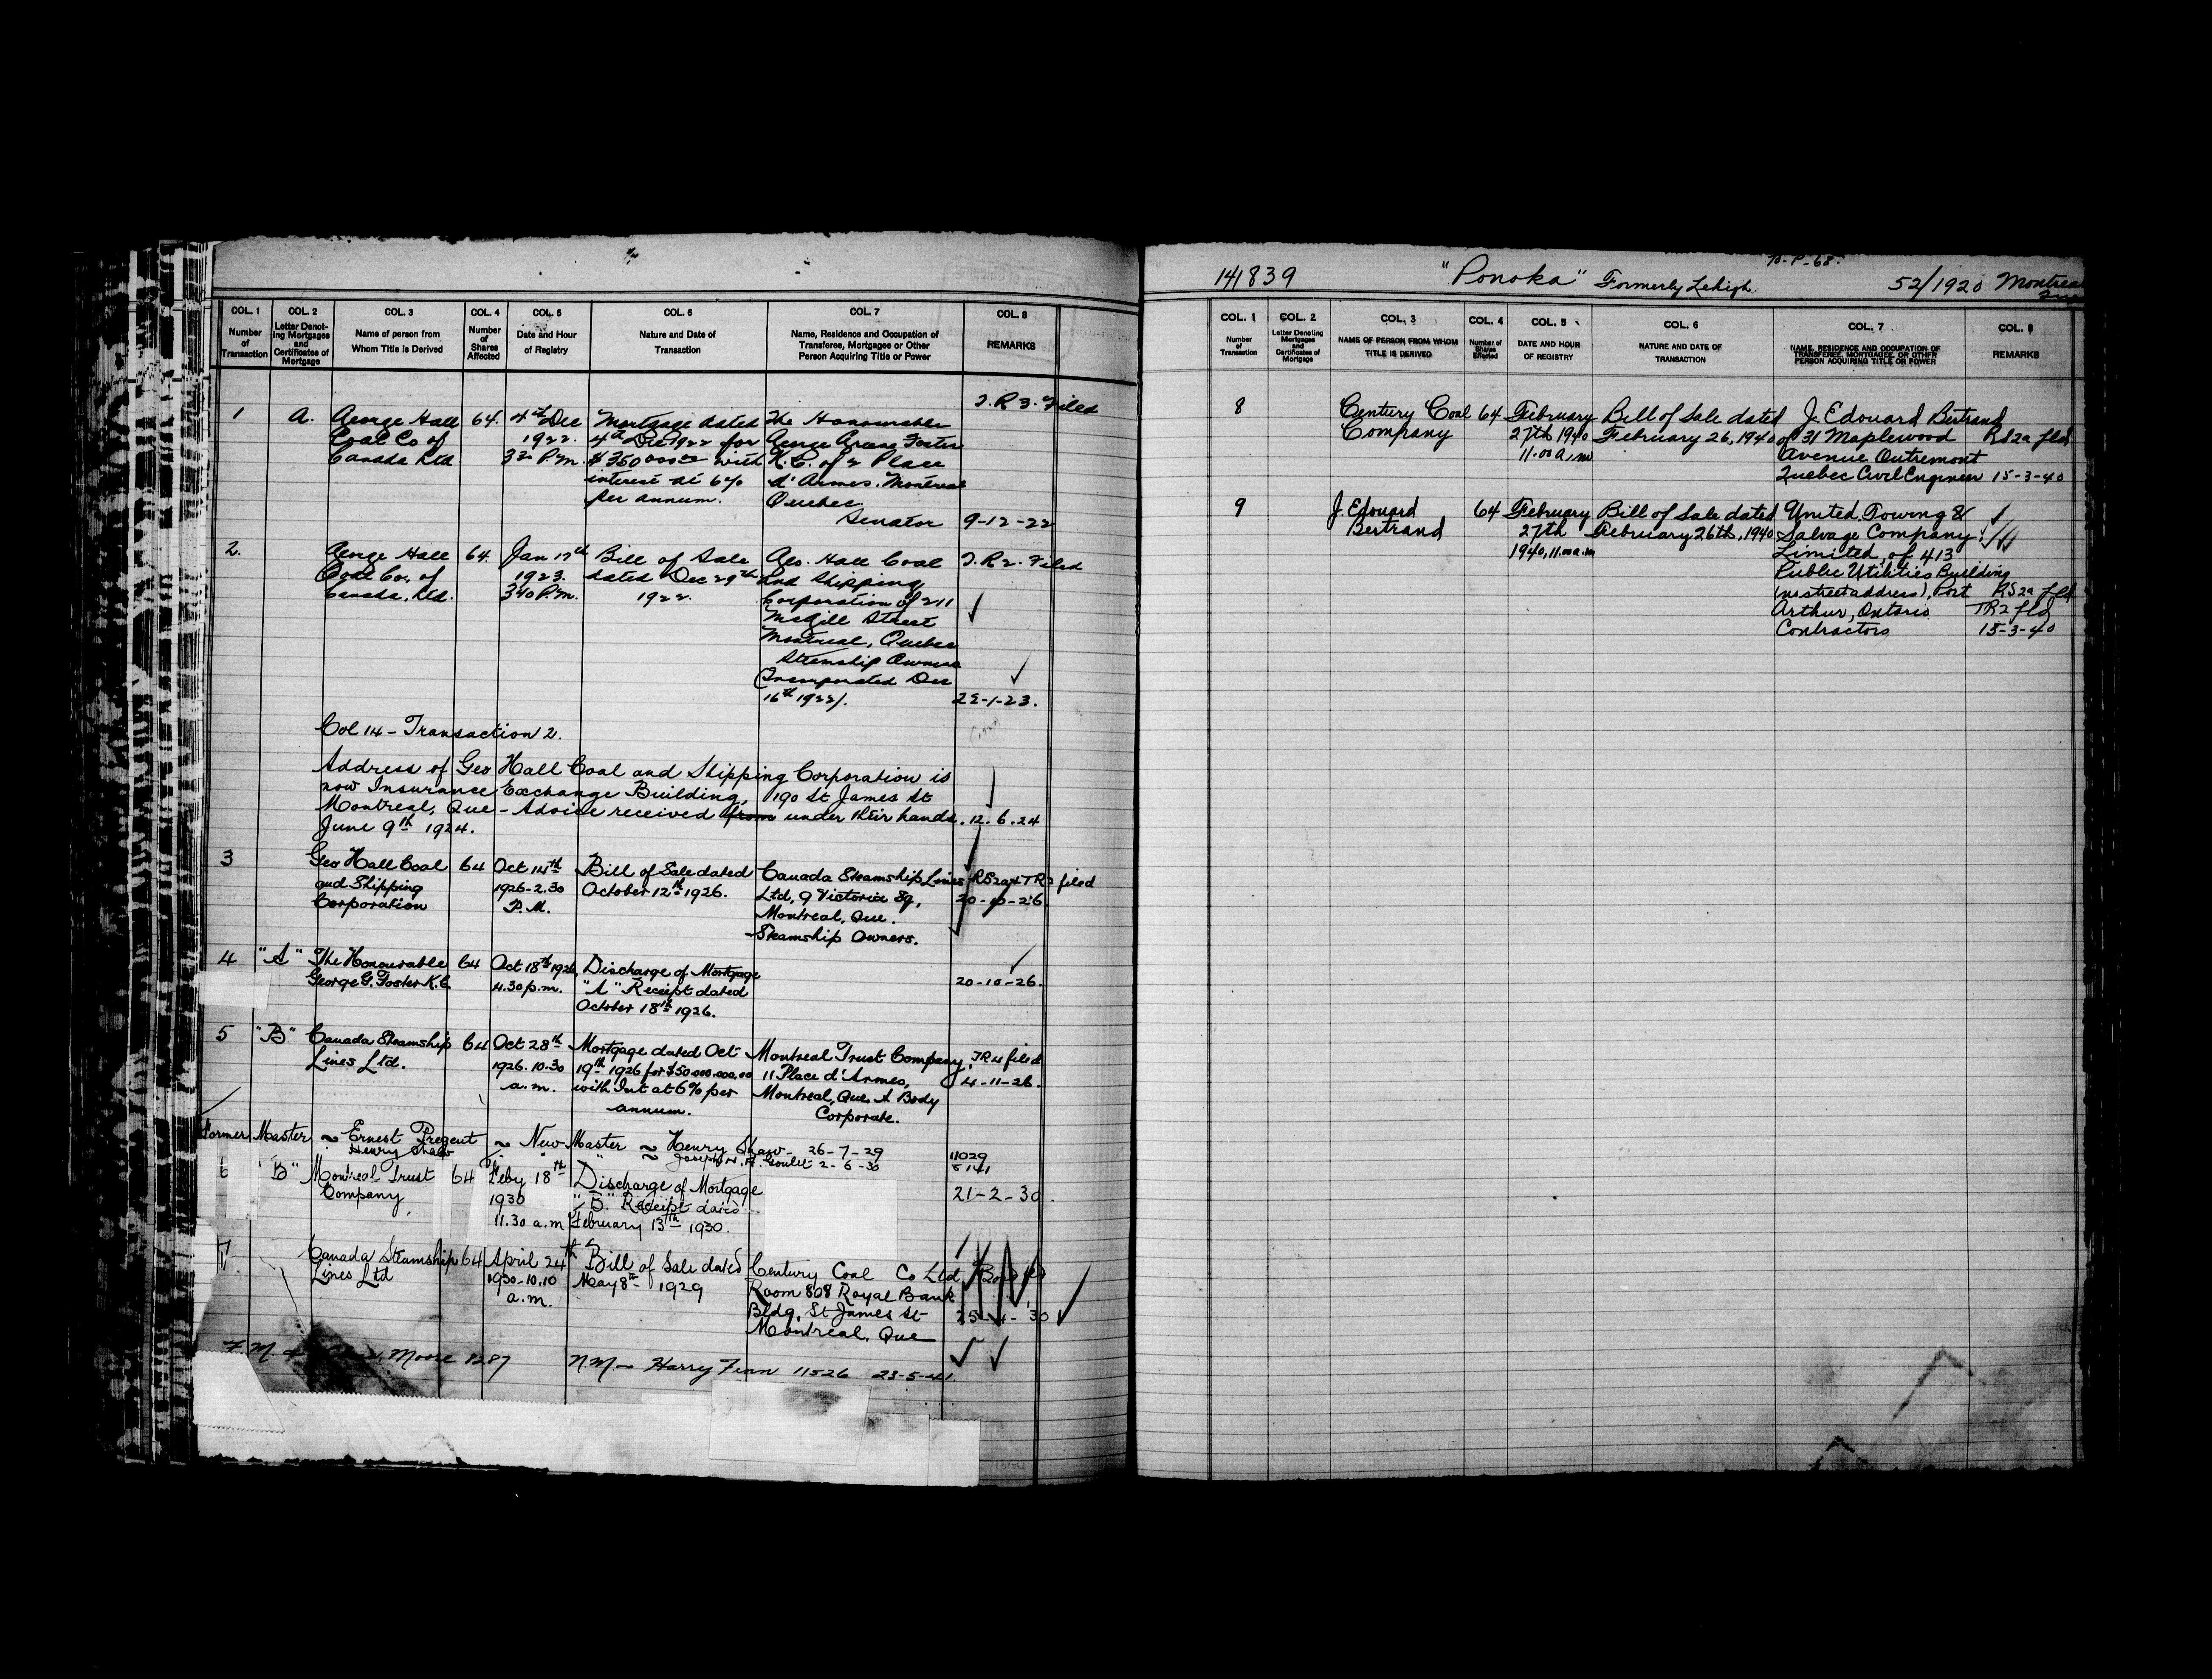 COL. 1 COL. 2 COL. 3 COL. 4 COL. 5 COL. 6 COL. 7 COL. 8
Number of Transaction
Letter Denoting Mortgages and Certificates of Mortgage
Name of person from Whom Title is Derived
Number of Shares Affected
Date and Hour of Registry
Nature and Date of Transaction
Name, Residence and Occupation of Transferee, Mortgagee or Other Person Acquiring Title or Power
REMARKS
T.R.3. Filed
1 A. George Hall 64. 4th Dec Mortgage dated The Honourable
Coal Co of 1922. 4th Dec 1922 for George Green Foster
Canada Ltd 3.30 P.M. $350,000.00 with K.C. of 2 Place
interest at 6% d'Armes. Montreal
per annum. Quebec
Senator 9-12-22
2. George Hall 64. Jan 17th Bill of Sale Geo. Hall Coal T.R.2. Filed
Coal Co. of 1923. dated Dec 29th and Shipping
Canada, Ltd. 3.40 P.M. 1922. Corporation of 211
McGill Street
Montreal, Quebec
Steamship Owners
(Incorporated Dec
16th 1922). 22-1-23.
Col 14 - Transaction 2.
Address of Geo Hall Coal and Shipping Corporation is
now Insurance Exchange Building, 190 St James St
Montreal, Que - Advice received from under their hands. 12.6.24
June 9th 1924.
3 Geo Hall Coal 64 Oct 14th Bill of Sale dated Canada Steamship Lines RS2a & TR2 filed
and Shipping 1926-2.30 October 12th 1926. Ltd, 9 Victoria Sq, 20-10-26
Corporation P.M. Montreal, Que.
Steamship Owners.
4 "A" The Honourable 64 Oct 18th 1926, Discharge of Mortgage
George G. Foster K.C. 4.30 p.m. "A" Receipt dated 20-10-26.
October 18th 1926.
5 "B" Canada Steamship 64 Oct 28th Mortgage dated Oct Montreal Trust Company, TR4 filed
Lines Ltd. 1926. 10.30 19th 1926 for $50.000.000,00 11 Place d'Armes, 4-11-26.
a.m. with Int at 6% per Montreal, Que. A Body
annum. Corporate.
Former Master ~ Ernest Pregent ~ New Master ~ Henry Shaw - 26-7-29 11029
Henry Shaw " " ~ Joseph N. H. Goulet 2-6-30 8141
6 "B" Montreal Trust 64 Feby 18th Discharge of Mortgage
Company 1930 "B." Receipt dated 21-2-30.
11.30 a.m February 13th 1930.
7 Canada Steamship 64 April 24th Bill of Sale dated Century Coal Co Ltd
Lines Ltd 1930-10.10 May 8th 1929 Room 808 Royal Bank
a.m. Bldg, St James St 25-4-30
Montreal, Que
F.M. Moore 8287 N.M. - Harry Finn 11526 23-5-41.
70-P-68.
141839 "Ponoka" Formerly Lehigh 52/1920 Montreal
Que
COL. 1 COL. 2 COL. 3 COL. 4 COL. 5 COL. 6 COL. 7 COL. 8
Number of Transaction
Letter Denoting Mortgages and Certificates of Mortgage
NAME OF PERSON FROM WHOM TITLE IS DERIVED
Number of Shares Affected
DATE AND HOUR OF REGISTRY
NATURE AND DATE OF TRANSACTION
NAME, RESIDENCE AND OCCUPATION OF TRANSFEREE, MORTGAGEE, OR OTHER PERSON ACQUIRING TITLE OR POWER
REMARKS
8 Century Coal 64 February Bill of Sale dated J. Edouard Bertrand
Company 27th 1940 February 26, 1940 of 31 Maplewood RS2a fld
11.00 a.m Avenue Outremont
Quebec Civil Engineer 15-3-40
9 J. Edouard 64 February Bill of Sale dated United Towing &
Bertrand 27th February 26th, 1940 Salvage Company
1940, 11.00 a.m Limited, of 413
Public Utilities Building
(no street address), Port RS2a fld
Arthur, Ontario TR2 fld
Contractors 15-3-40